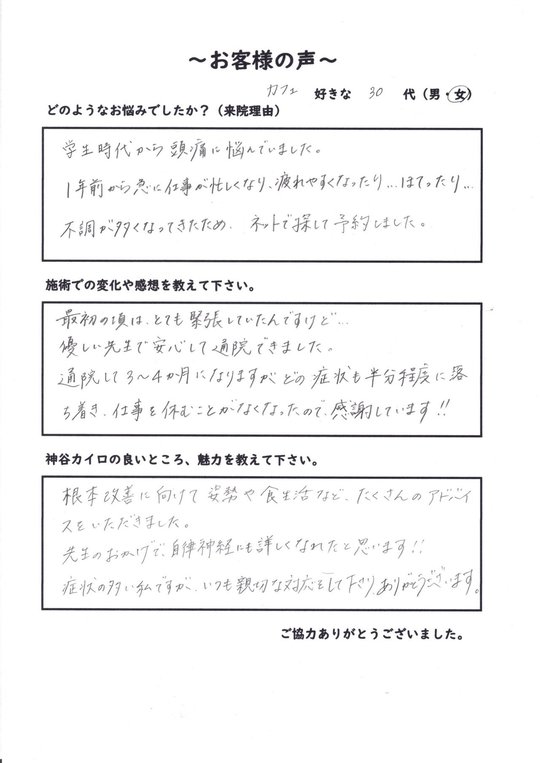 ～お客様の声～
カフェ 好きな 30 代（男・女）
どのようなお悩みでしたか？（来院理由）
学生時代から頭痛に悩んでいました。
1年前から急に仕事が忙しくなり、疲れやすくなったり…ほてったり…
不調が多くなってきたため、ネットで探して予約しました。
施術での変化や感想を教えて下さい。
最初の頃は、とても緊張していたんですけど…
優しい先生で安心して通院できました。
通院して3～4か月になりますがどの症状も半分程度に落
ち着き、仕事を休むことがなくなったので、感謝しています!!
神谷カイロの良いところ、魅力を教えて下さい。
根本改善に向けて姿勢や食生活など、たくさんのアドバイ
スをいただきました。
先生のおかげで、自律神経にも詳しくなれたと思います!!
症状の多い私ですが、いつも親切な対応をして下さり、ありがとうございます。
ご協力ありがとうございました。